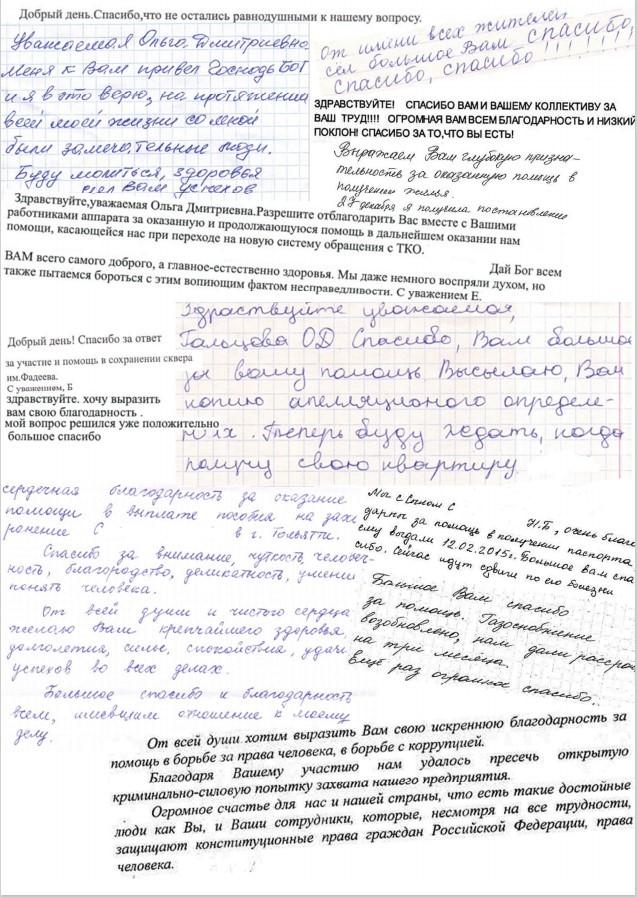 Добрый день.Спасибо,что не остались равнодушными к нашему вопросу.
Уважаемая Ольга Дмитриевна,
меня к Вам привел Господь Бог
и я в это верю, на протяжении
всей моей жизни со мной
были замечательные люди.
Буду молиться, здоровья
Вам успехов
От имени всех жителей
сёл большое Вам спасибо,
спасибо, спасибо !!!!!!!
ЗДРАВСТВУЙТЕ! СПАСИБО ВАМ И ВАШЕМУ КОЛЛЕКТИВУ ЗА
ВАШ ТРУД!!!! ОГРОМНАЯ ВАМ ВСЕМ БЛАГОДАРНОСТЬ И НИЗКИЙ
ПОКЛОН! СПАСИБО ЗА ТО,ЧТО ВЫ ЕСТЬ!
Выражаем Вам глубокую призна-
тельность за оказанную помощь в
получении жилья.
27 декабря я получила постановление
Здравствуйте,уважаемая Ольга Дмитриевна.Разрешите отблагодарить Вас вместе с Вашими
работниками аппарата за оказанную и продолжающуюся помощь в дальнейшем оказании нам
помощи, касающейся нас при переходе на новую систему обращения с ТКО.
Дай Бог всем
ВАМ всего самого доброго, а главное-естественно здоровья. Мы даже немного воспряли духом, но
также пытаемся бороться с этим вопиющим фактом несправедливости. С уважением Е.
Добрый день! Спасибо за ответ
за участие и помощь в сохранении сквера
им.Фадеева.
С уважением, Б
здравствуйте. хочу выразить
вам свою благодарность .
мой вопрос решился уже положительно
большое спасибо
Здраствуйте уважаемая,
Гальцова ОД. Спасибо, Вам большо
за вашу помощь. Высылаю, Вам
копию апелляционого определе-
них. Теперь буду ждать, когда
получу свою квартиру.
сердечная благодарность за оказание
помощи в выплате пособия на захо
ронение С в г. Тольятти.
Спасибо за внимание, чуткость, человеч-
ность, благородство, деликатность, умение
понять человека.
От всей души и чистого сердца
желаю Вам крепчайшего здоровья,
долголетия, силы, спокойствия, удачи
успехов во всех делах.
Большое спасибо и благодарность
всем, имевшим отношение к моему
делу.
Мы с Сыном С Н.Б., очень благо
дарны за помощь в получении паспорта
ему выдали 12.02.2015г. Большое вам спа
сибо. Сейчас идут сдвиги по его болезни
Большое Вам спасибо
за помощь. Газоснабжение
возобновлено, нам дали рассроч
на три месяца.
Ещё раз огромное спасибо..
От всей души хотим выразить Вам свою искреннюю благодарность за
помощь в борьбе за права человека, в борьбе с коррупцией.
Благодаря Вашему участию нам удалось пресечь открытую
криминально-силовую попытку захвата нашего предприятия.
Огромное счастье для нас и нашей страны, что есть такие достойные
люди как Вы, и Ваши сотрудники, которые, несмотря на все трудности,
защищают конституционные права граждан Российской Федерации, права
человека.